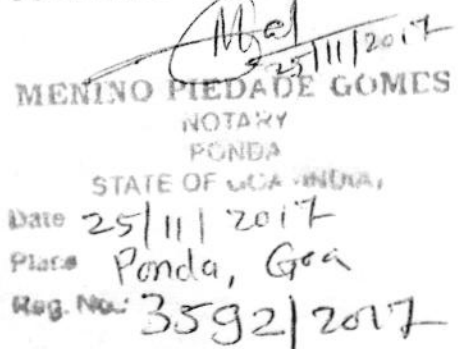 25/11/2017
MENINO PIEDADE GOMES
NOTARY
PONDA
STATE OF GOA - INDIA,
Date 25/11/2017
Place Ponda, Goa
Reg. No.: 3592/2017